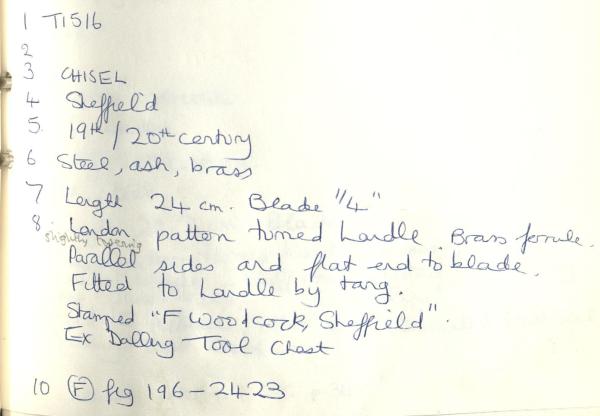 1 T1516
2
3 CHISEL
4 Sheffield
5. 19th / 20th century
6 Steel, ash, brass
7 Length 24 cm. Blade "/4"
8. London pattern turned handle. Brass ferrule.
slightly tapering
Parallel sides and flat end to blade.
Fitted to handle by tang.
Stamped "F Woodcock, Sheffield".
Ex Dalling Tool Chest
10 (F) fig 196-2423